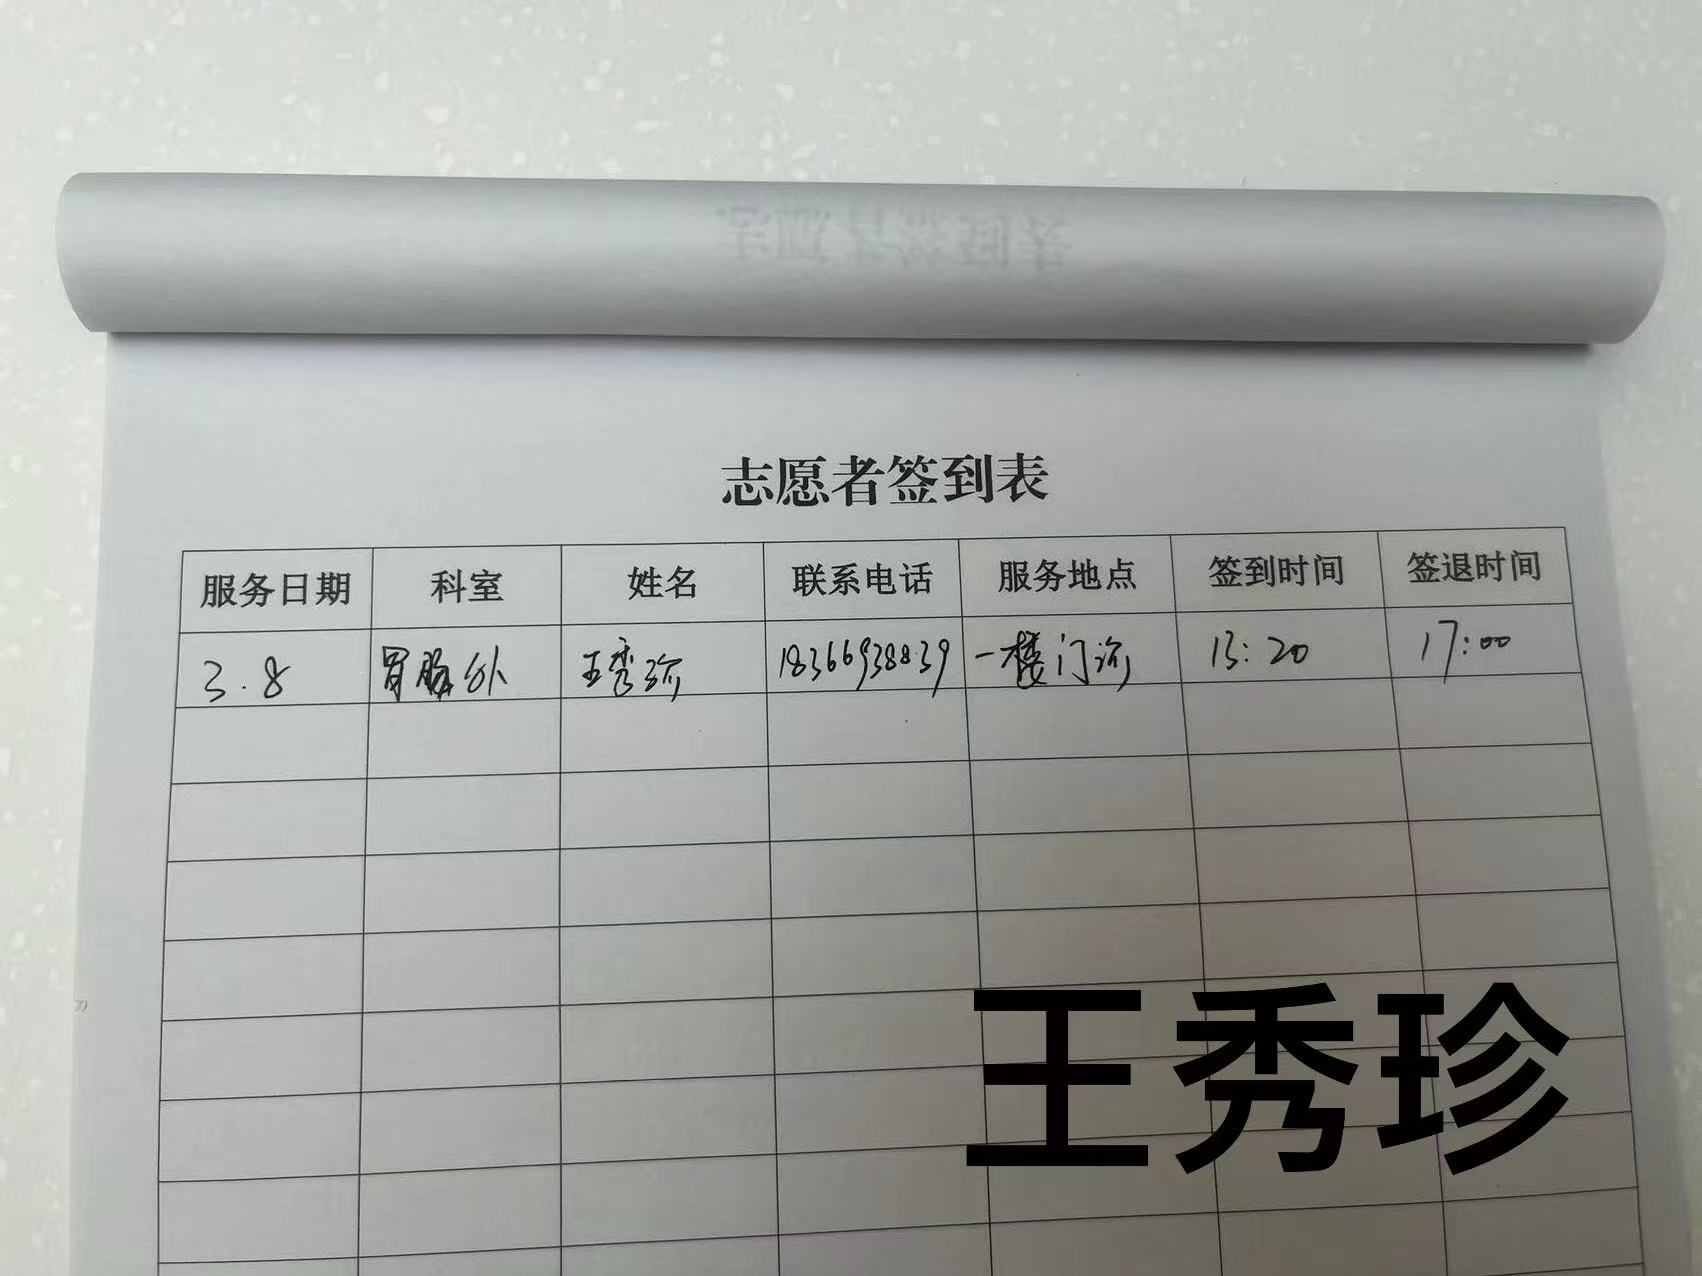 志愿者签到表
服务日期 科室 姓名 联系电话 服务地点 签到时间 签退时间
3.8 胃肠外 王秀珍 18366938839 一楼门诊 13:20 17:00
王秀珍